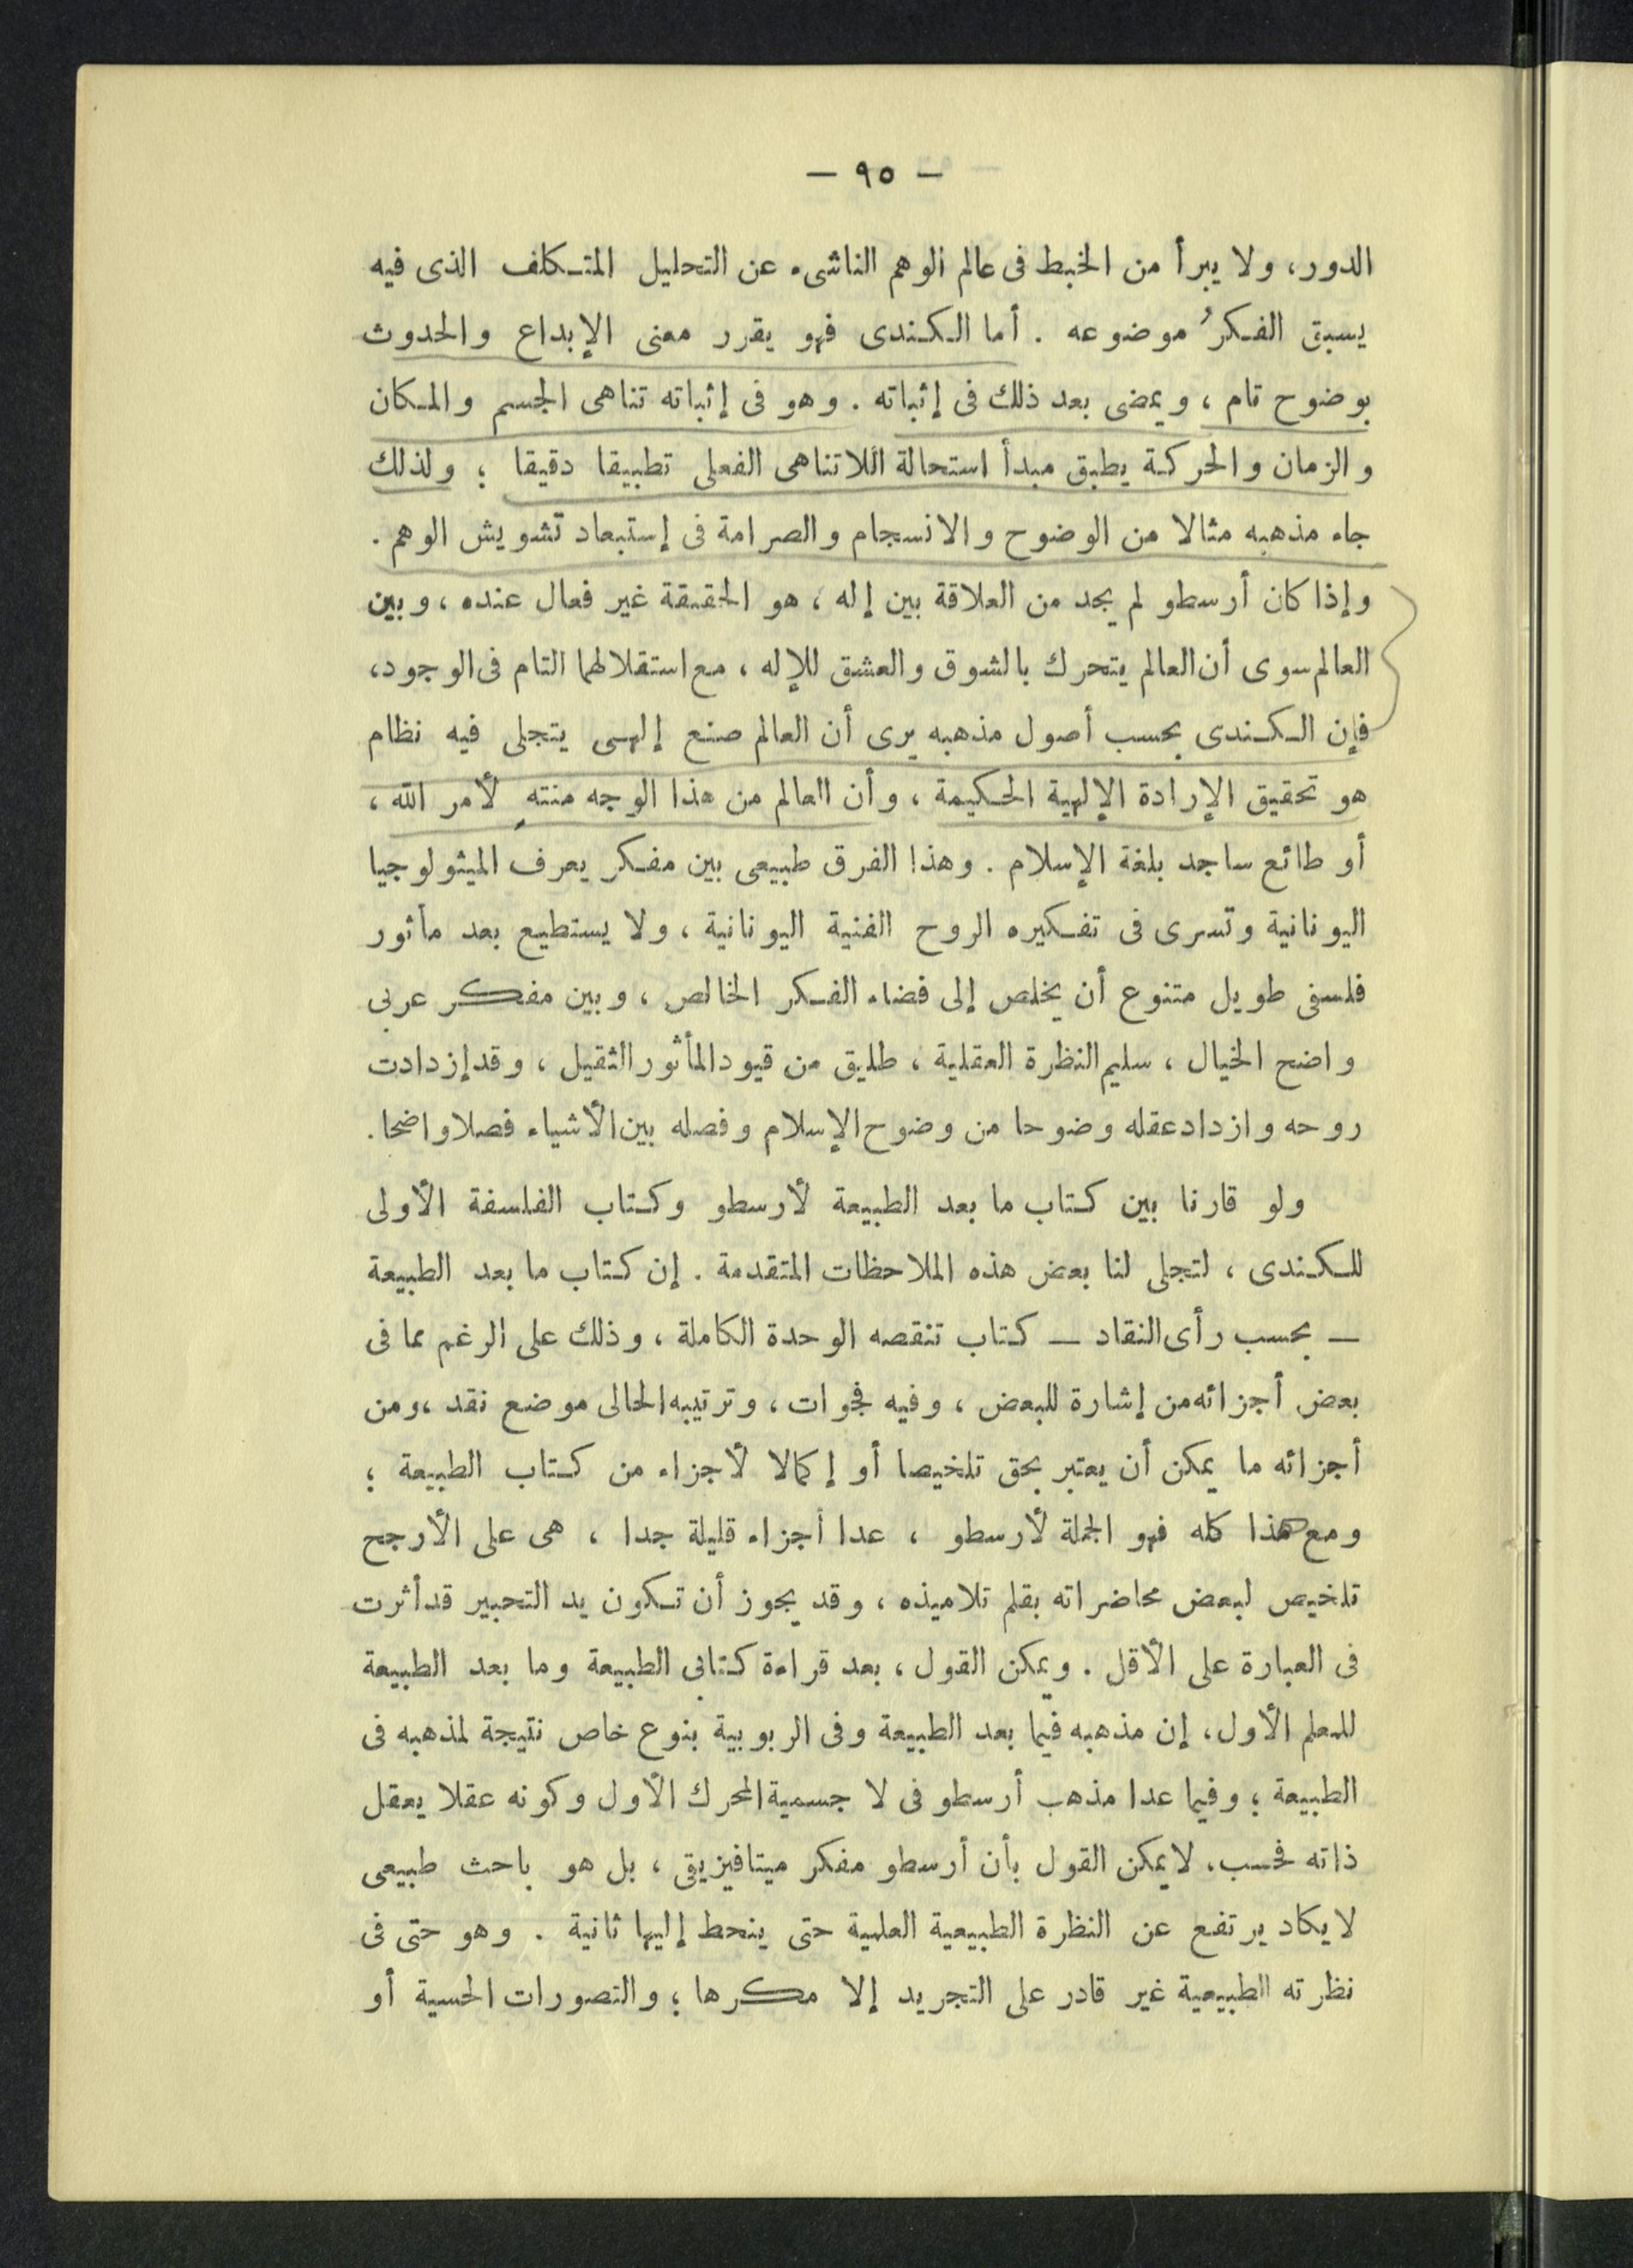 — ٩٥ —
الدور، ولا يبرأ من الخبط فى عالم الوهم الناشىء عن التحليل المتكلف الذى فيه
يسبق الفكرُ موضوعه . أما الكندى فهو يقرر معنى الإبداع والحدوث
بوضوح تام ، ويمضى بعد ذلك فى إثباته . وهو فى إثباته تناهى الجسم والمكان
والزمان والحركة يطبق مبدأ استحالة اللاتناهى الفعلى تطبيقا دقيقا ؛ ولذلك
جاء مذهبه مثالا من الوضوح والانسجام والصرامة فى إستبعاد تشويش الوهم .
وإذا كان أرسطو لم يجد من العلاقة بين إله ، هو الحقيقة غير فعال عنده ، وبين
العالم سوى أن العالم يتحرك بالشوق والعشق للإله ، مع استقلالهما التام فى الوجود،
فإن الكندى بحسب أصول مذهبه يرى أن العالم صنع إلهى يتجلى فيه نظام
هو تحقيق الإرادة الإلهية الحكيمة ، وأن العالم من هذا الوجه منتهٍ لأمر الله ،
أو طائع ساجد بلغة الإسلام . وهذا الفرق طبيعى بين مفكر يعرف الميثولوجيا
اليونانية وتسرى فى تفكيره الروح الفنية اليونانية ، ولا يستطيع بعد مأثور
فلسفى طويل متنوع أن يخلص إلى فضاء الفكر الخالص ، وبين مفكر عربى
واضح الخيال ، سليم النظرة العقلية ، طليق من قيود المأثور الثقيل ، وقد إزدادت
روحه وازداد عقله وضوحا من وضوح الإسلام وفصله بين الأشياء فصلا واضحا.
ولو قارنا بين كتاب ما بعد الطبيعة لأرسطو وكتاب الفلسفة الأولى
للكندى ، لتجلى لنا بعض هذه الملاحظات المتقدمة . إن كتاب ما بعد الطبيعة
— بحسب رأى النقاد — كتاب تنقصه الوحدة الكاملة ، وذلك على الرغم مما فى
بعض أجزائه من إشارة للبعض ، وفيه فجوات ، وترتيبه الحالى موضع نقد ، ومن
أجزائه ما يمكن أن يعتبر بحق تلخيصا أو إكمالا لأجزاء من كتاب الطبيعة ؛
ومع هذا كله فهو الجملة لأرسطو ، عدا أجزاء قليلة جدا ، هى على الأرجح
تلخيص لبعض محاضراته بقلم تلاميذه ، وقد يجوز أن تكون يد التحبير قد أثرت
فى العبارة على الأقل . ويمكن القول ، بعد قراءة كتابى الطبيعة وما بعد الطبيعة
للمعلم الأول ، إن مذهبه فيما بعد الطبيعة وفى الربوبية بنوع خاص نتيجة لمذهبه فى
الطبيعة ؛ وفيما عدا مذهب أرسطو فى لا جسمية المحرك الأول وكونه عقلا يعقل
ذاته فحسب ، لا يمكن القول بأن أرسطو مفكر ميتافيزيقى ، بل هو باحث طبيعى
لا يكاد يرتفع عن النظرة الطبيعية العلمية حتى ينحط إليها ثانية . وهو حتى فى
نظرته الطبيعية غير قادر على التجريد إلا مكرها ؛ والتصورات الحسية أو